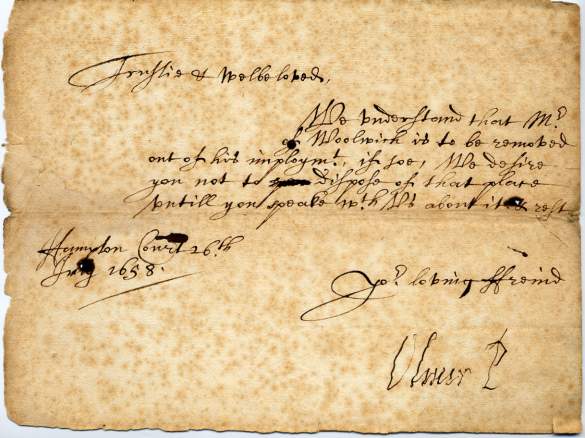 Trustie & welbeloved,
We understand that Mr.
of Woolwick is to be removed
out of his imploymt., if soe, We desire
you not to dispose of that place
untill you speake wth Us about it & rest
Hampton Court 26th
July 1658.
Yor. loving ffreind
Oliver P